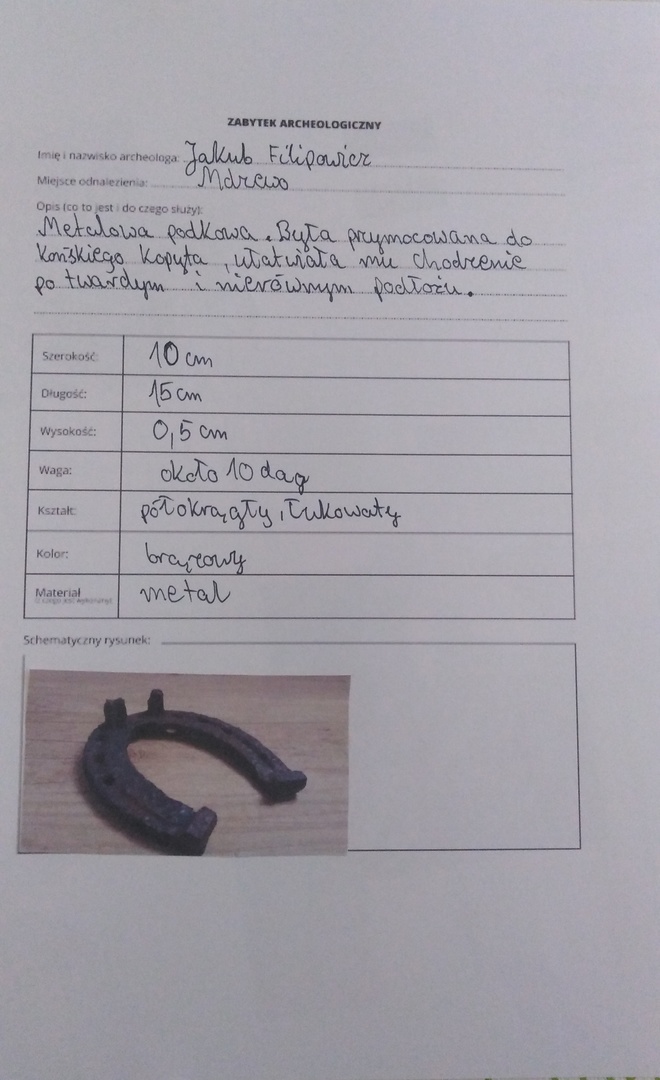 ZABYTEK ARCHEOLOGICZNY
Imię i nazwisko archeologa: Jakub Filipowicz
Miejsce odnalezienia: Mdrzewo
Opis (co to jest i do czego służy):
Metalowa podkowa. Była przymocowana do
końskiego kopyta, ułatwiała mu chodzenie
po twardym i nierównym podłożu.
Szerokość: 10 cm
Długość: 15 cm
Wysokość: 0,5 cm
Waga: około 10 dag
Kształt: półokrągły, łukowaty
Kolor: brązowy
Materiał metal
(z czego jest wykonany):
Schematyczny rysunek: